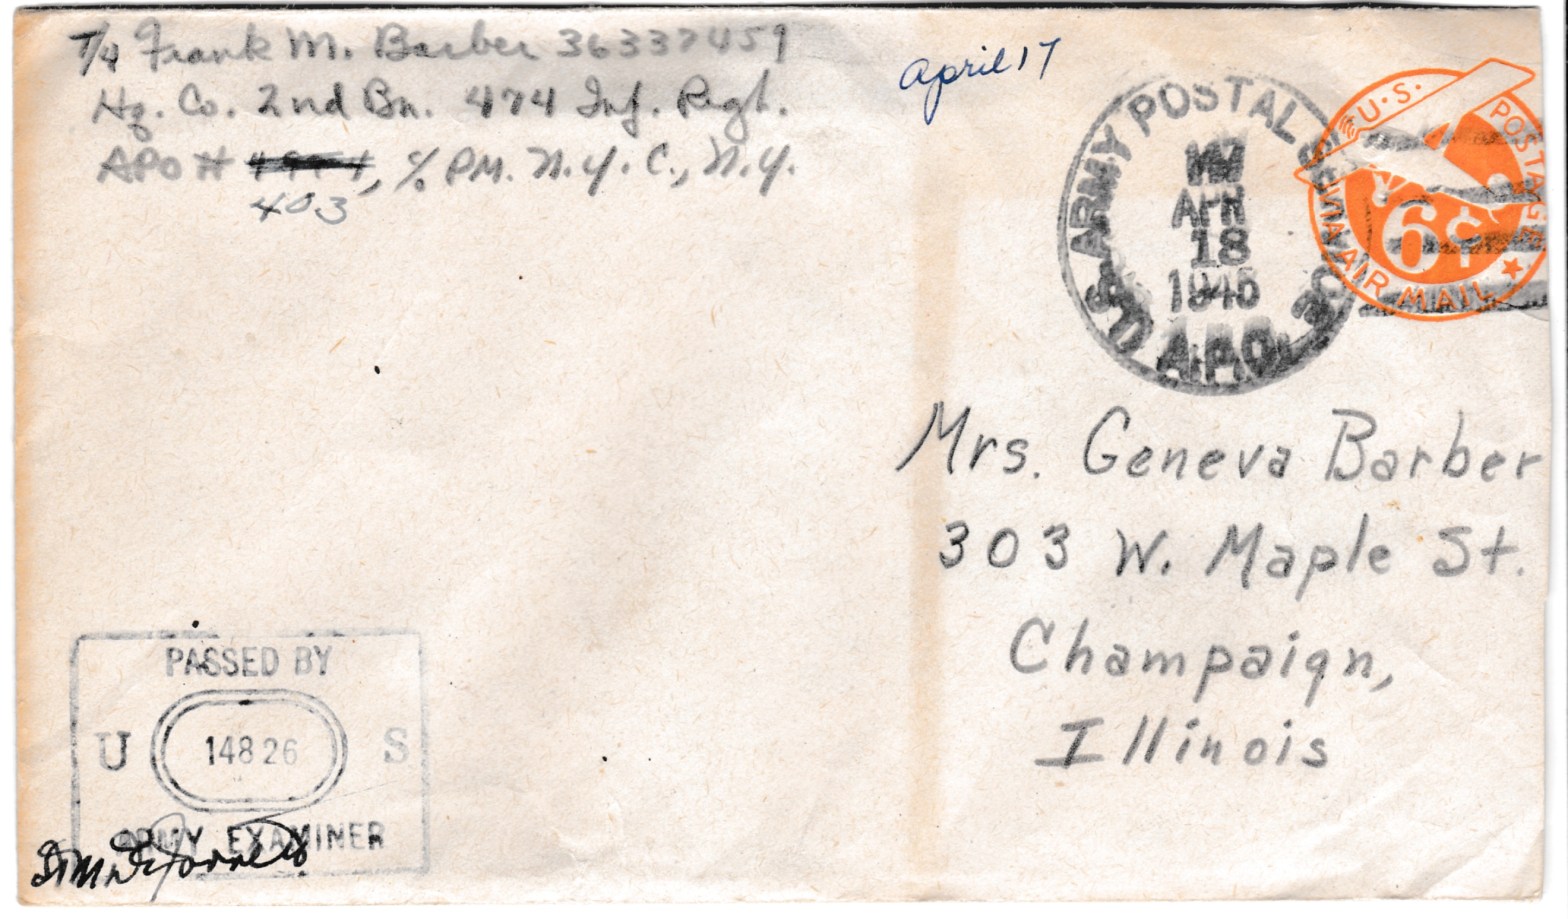 T/4 Frank M. Barber 36337459
Hq. Co. 2nd Bn. 474 Inf. Regt.
APO #, % P.M. N.Y.C., N.Y.
403
April 17
U.S. ARMY POSTAL SERVICE
APR
18
1945
A.P.O.
U.S. POSTAGE
6¢
VIA AIR MAIL
Mrs. Geneva Barber
303 W. Maple St.
Champaign,
Illinois
PASSED BY
U 14826 S
ARMY EXAMINER